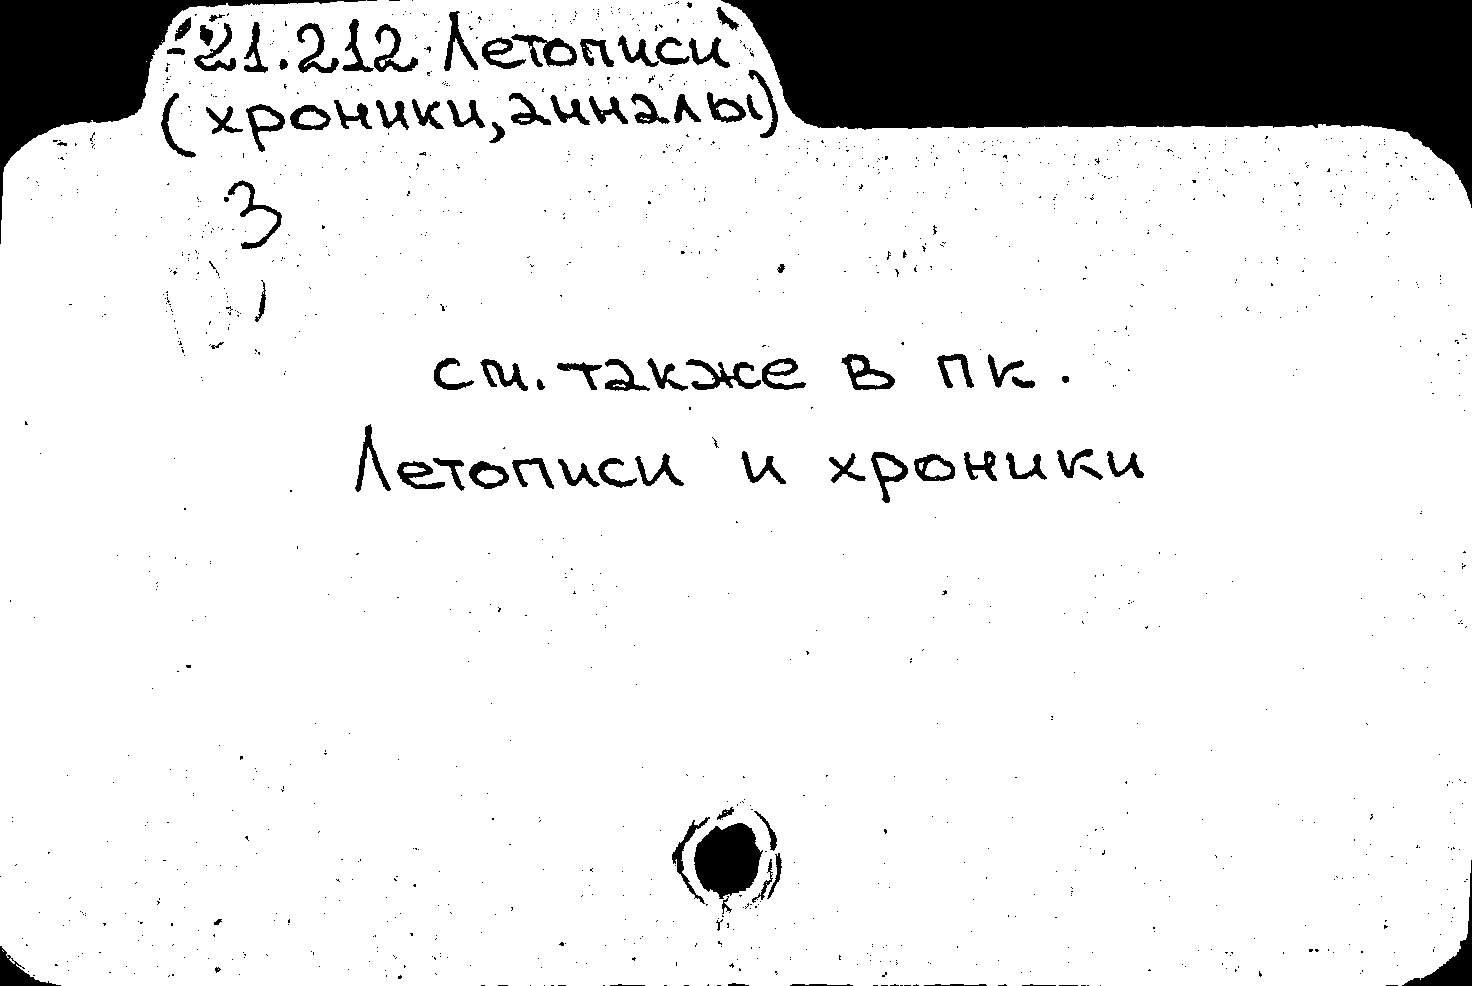 -21.212 Летописи
(хроники, анналы)
3
см. также в пк.
Летописи и хроники